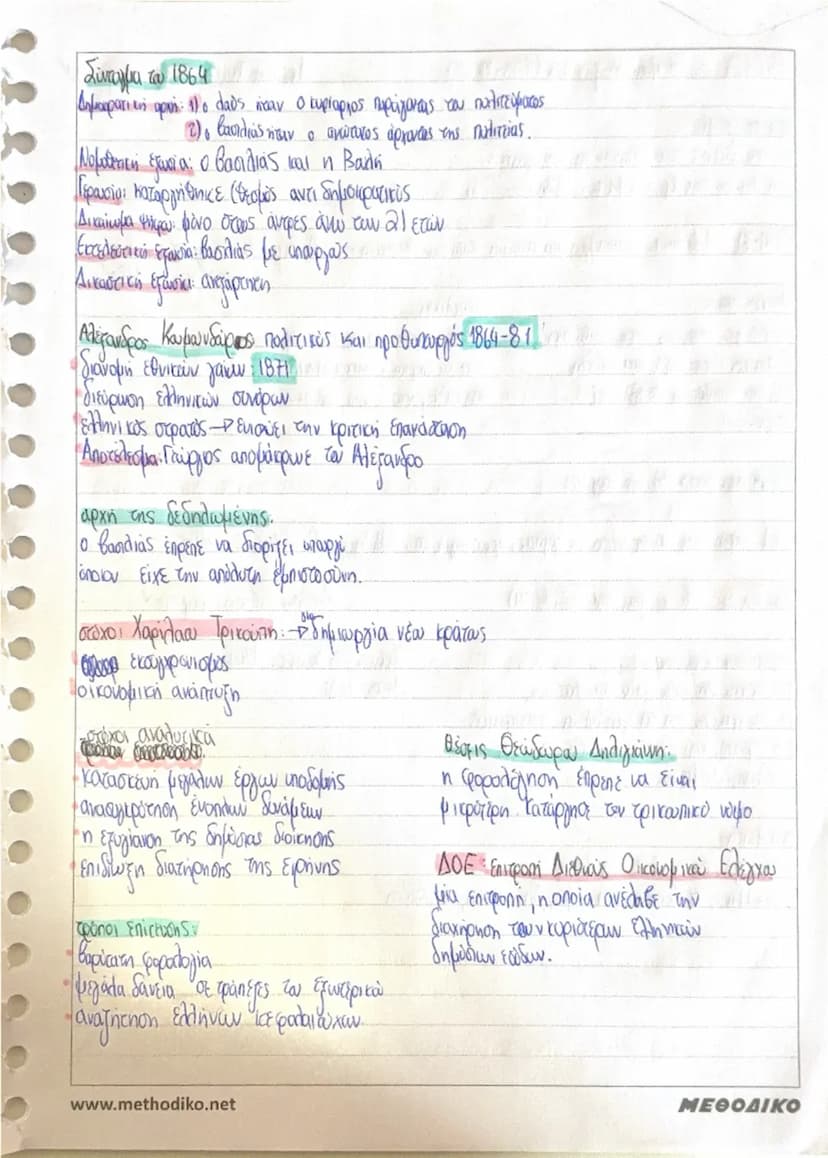 Σύνταγμα του 1864
Δημοκρατική αρχή: 1) ο λαός ήταν ο κυρίαρχος παράγοντας του πολιτεύματος
2) ο βασιλιάς ήταν ο ανώτατος άρχοντας της πολιτείας.
Νομοθετική εξουσία: ο βασιλιάς και η Βουλή
Γερουσία: καταργήθηκε (θεσμός αντιδημοκρατικός
Δικαίωμα ψήφου: μόνο στους άντρες άνω των 21 ετών
Εκτελεστική εξουσία: βασιλιάς με υπουργούς
Δικαστική εξουσία: ανεξάρτητη
Αλέξανδρος Κουμουνδούρος πολιτικός και πρωθυπουργός 1864-81
διανομή εθνικών γαιών: 1871
διεύρυνση ελληνικών συνόρων
ελληνικός στρατός → ενισχύει την κρητική επανάσταση
Αποτέλεσμα: Γεώργιος απομάκρυνε τον Αλέξανδρο
αρχή της δεδηλωμένης.
ο βασιλιάς έπρεπε να διορίζει υπουργό
όποιον είχε την απόλυτη εμπιστοσύνη.
στόχοι Χαρίλαου Τρικούπη: → δημιουργία νέου κράτους
εκσυγχρονισμός
οικονομική ανάπτυξη
στόχοι αναλυτικά
κατασκευή μεγάλων έργων υποδομής
αναδιοργάνωση ένοπλων δυνάμεων
η εξυγίανση της δημόσιας διοίκησης
επιδίωξη διατήρησης της ειρήνης
τρόποι επίτευξης:
βαρύτατη φορολογία
μεγάλα δάνεια σε τράπεζες του εξωτερικού
αναζήτηση ελλήνων κεφαλαιούχων
θέσεις Θεόδωρου Δηλιγιάννη:
η φορολόγηση έπρεπε να είναι
μικρότερη. Κατάργησε τον τρικουπικό νόμο
ΔΟΕ: επιτροπή Διεθνούς Οικονομικού Ελέγχου
μία επιτροπή, η οποία ανέλαβε την
διαχείρηση των κυριότερων ελληνικών
δημόσιων εσόδων.
www.methodiko.net
ΜΕΘΟΔΙΚΟ